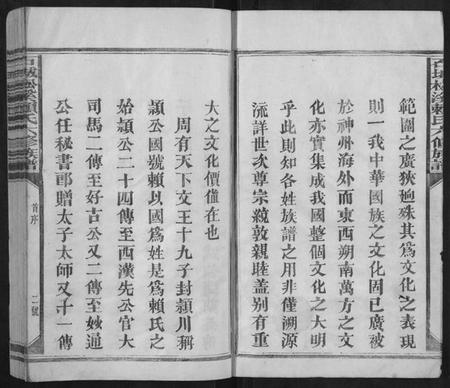 範圍之廣狹逈殊其為文化之表現
則一我中華國族之文化固已廣被
於神州海外而東西朔南萬方之文
化亦實集成我國整個文化之大明
乎此則知各姓族譜之用非僅溯源
流詳世次尊宗統敦親睦蓋别有重
大之文化價值在也
周有天下文王十九子封潁川稱
潁公國號賴以國為姓是為賴氏之
始潁公二十四傳至西漢先公官大
司馬二傳至好古公又二傳至妙通
公任秘書郎贈太子太師又十一傳
首序
二號